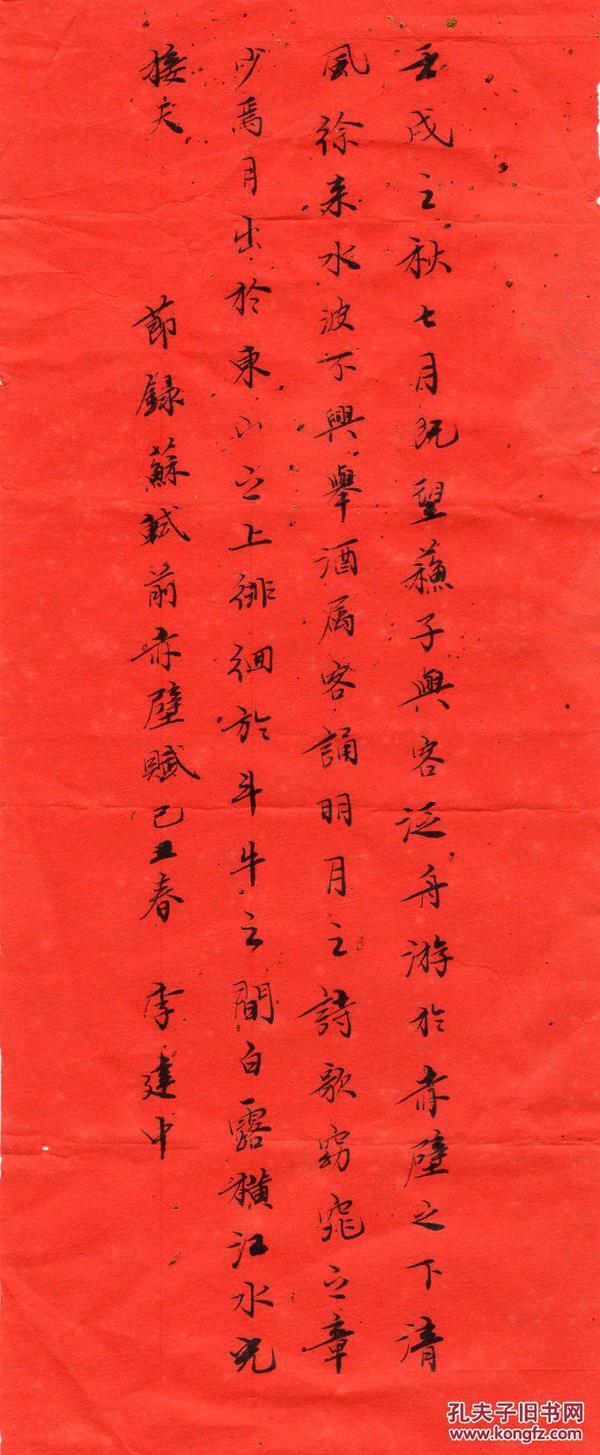 壬戌之秋七月既望蘇子與客泛舟游於赤壁之下清
風徐来水波不興舉酒属客誦明月之詩歌窈窕之章
少焉月出於東山之上徘徊於斗牛之間白露横江水光
接天
節録蘇軾前赤壁賦己丑春 李建中
孔夫子旧书网
www.kongfz.com